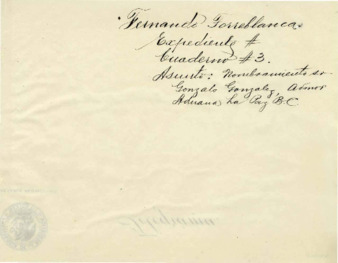 Fernando Torreblanca
Expediente #
Cuaderno #3.
Asunto: Nombramiento sr.
Gonzalo Gonzalez, Admor
Aduana, La Paz B.C